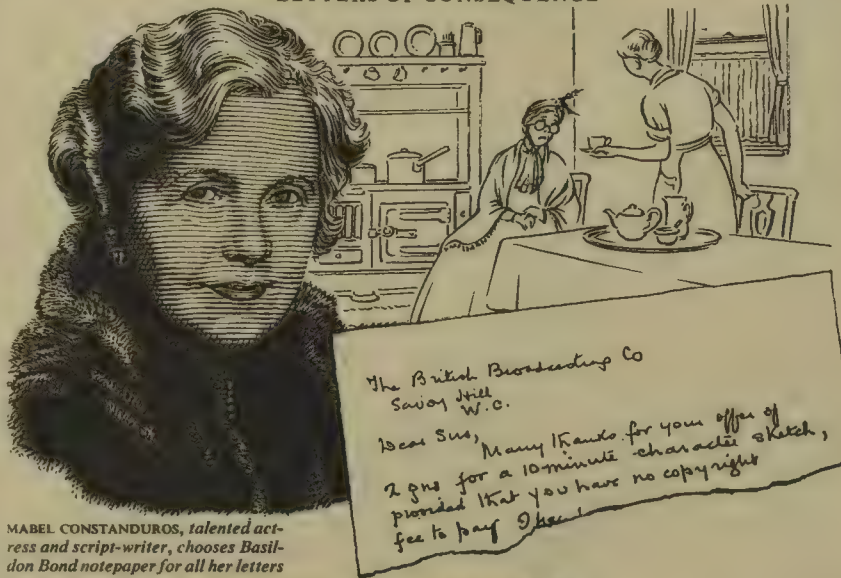 LETTERS OF CONSEQUENCE
The British Broadcasting Co
Savoy Hill
W.C.
Dear Sirs,
Many thanks for your offer of
2 gns for a 10 minute character sketch,
provided that you have no copyright
fee to pay I
MABEL CONSTANDUROS, talented act-
ress and script-writer, chooses Basil-
don Bond notepaper for all her letters